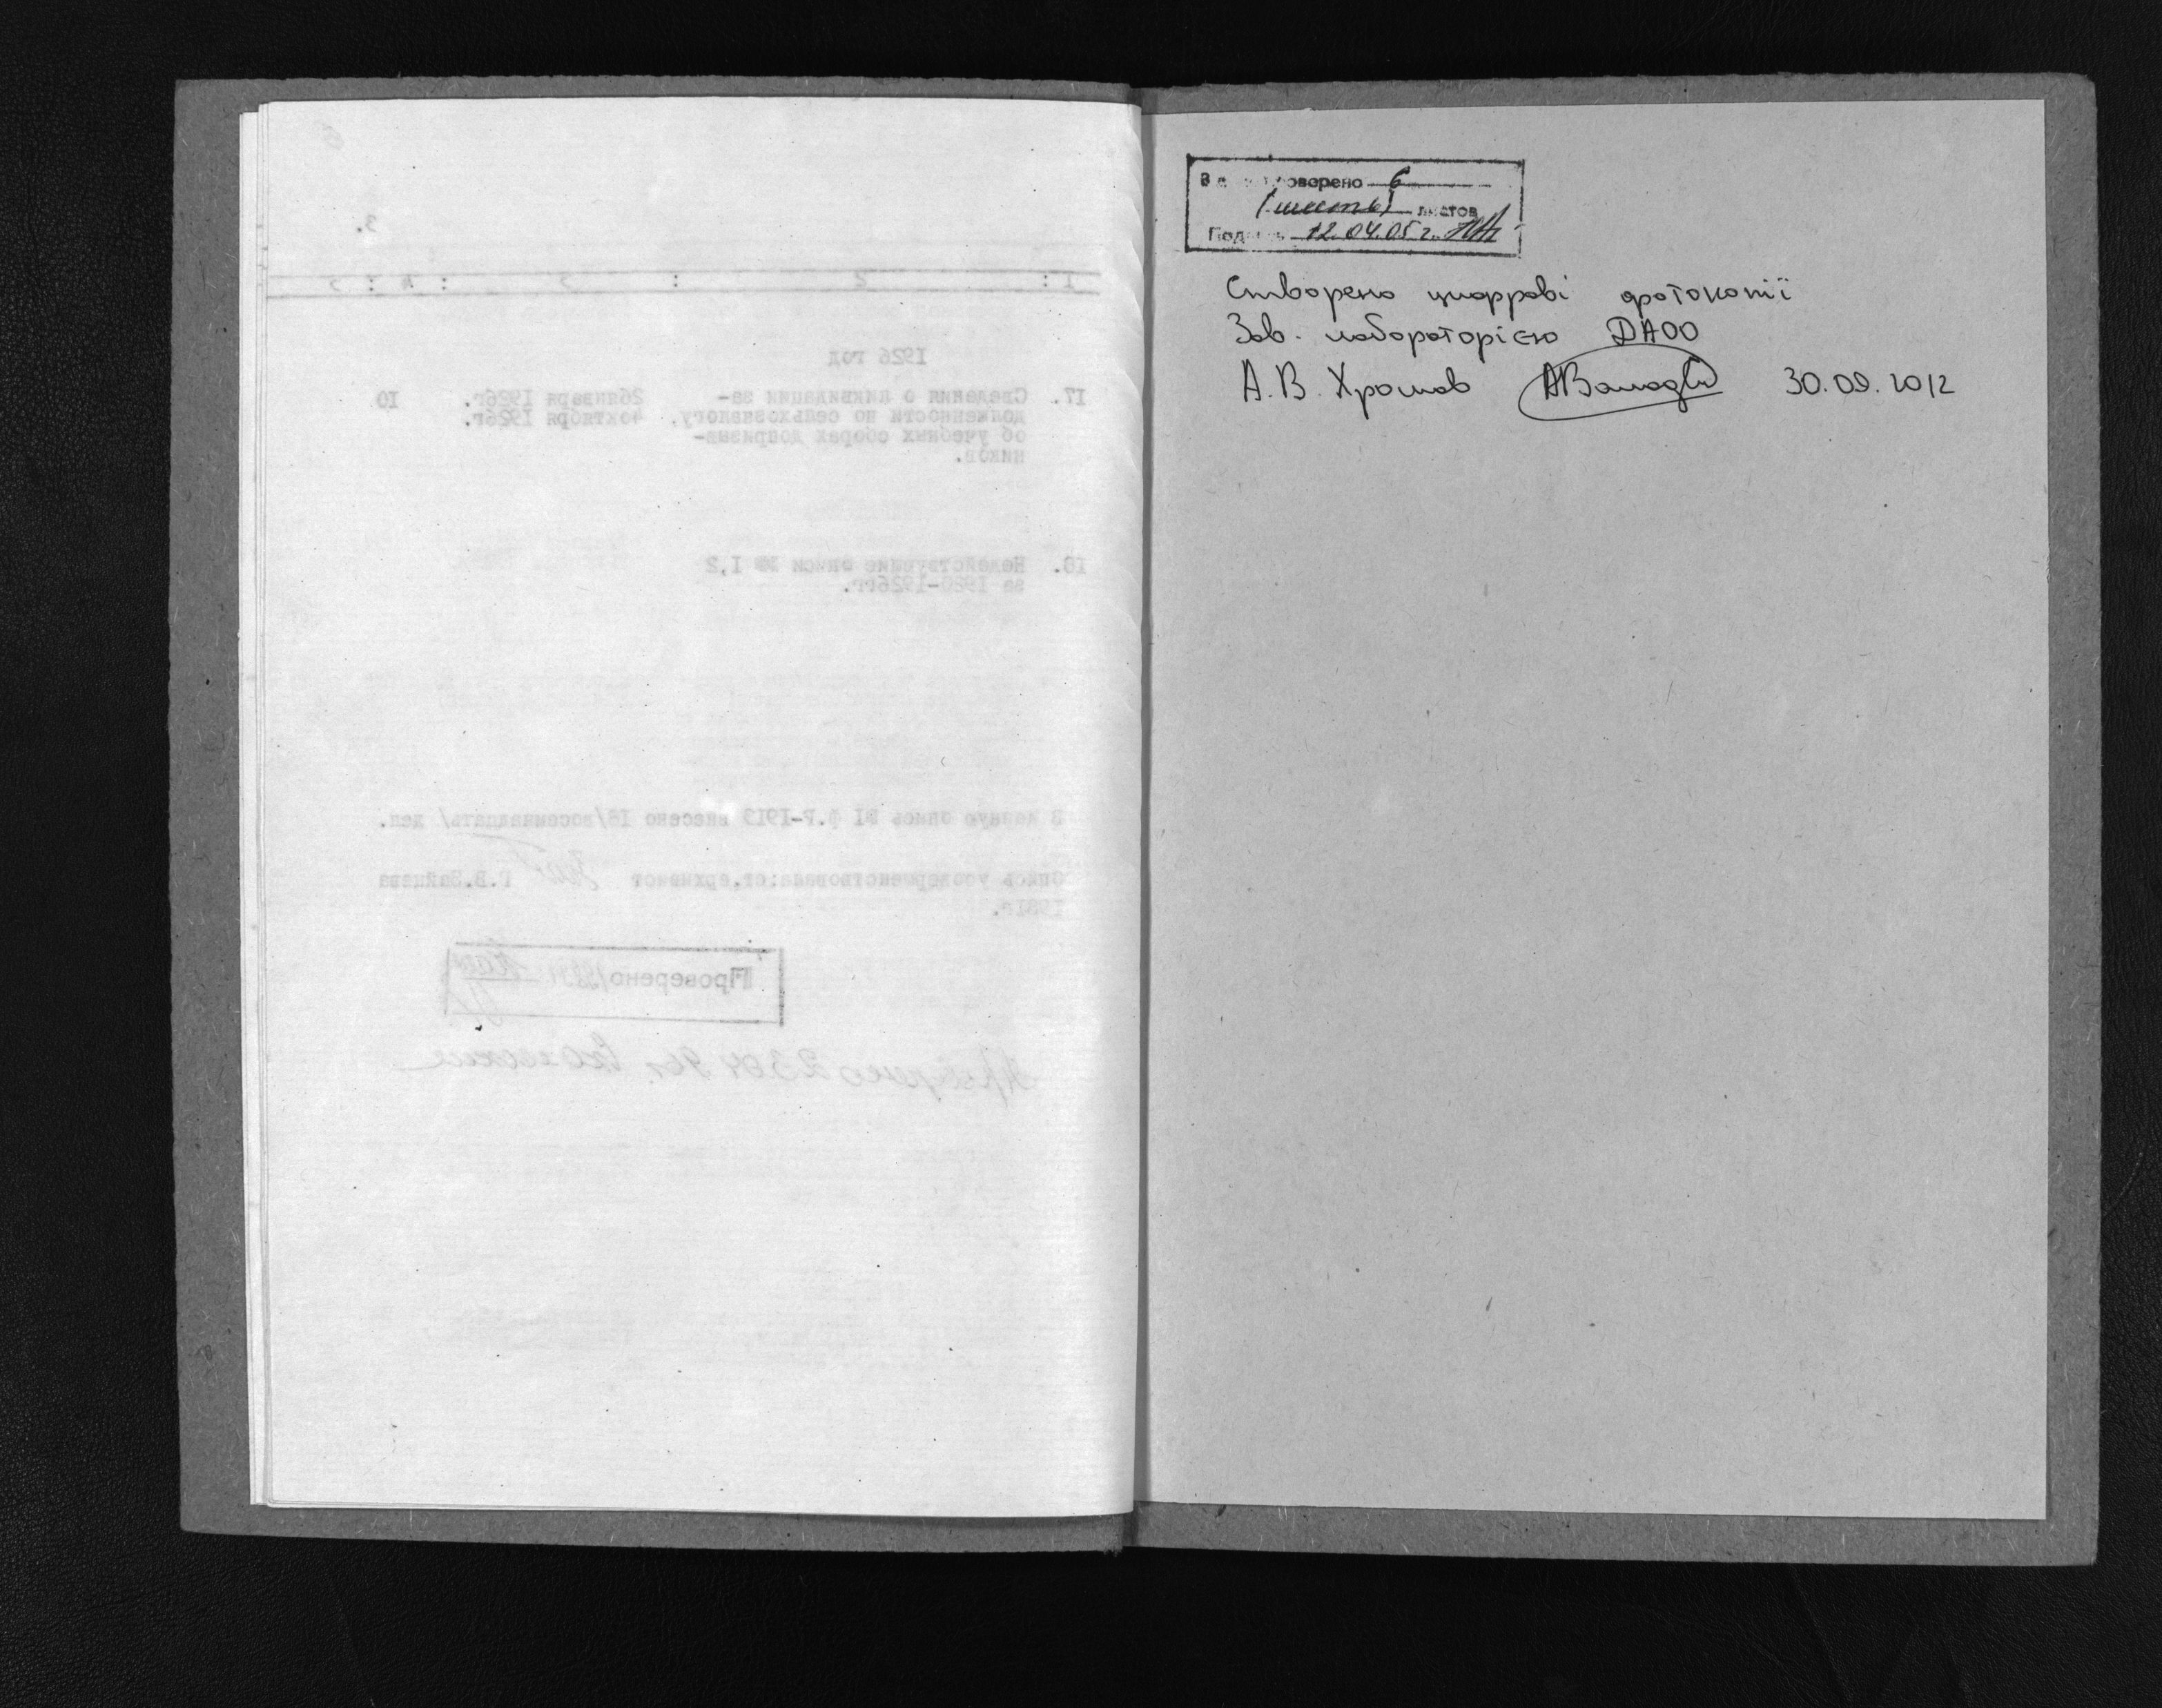 6
3.
1 : 2 : 3 : 4 : 5
1926 год
17. Сведения о ликвидации за- 26января 1926г. 10
долженности по сельхозналогу, 4октября 1926г.
об учебных сборах допризыв-
ников.
18. Недействующие описи №№ 1,2
за 1920-1926гг.
В данную опись №1 ф.Р-1913 внесено 18/восемнадцать/ дел.
Опись усовершенствовала:ст.архивист Г.В.Зайцева
1981г.
Проверено
Проверено 23 04 96 г.
В оверено 6
(шесть) листов
Подпись 12.04.05 г.
Створено цифрові фотокопії
Зав. лабораторією ДАОО
А.В. Хромов 30.09.2012